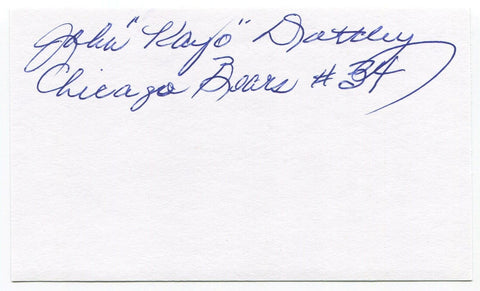 John "Kayo" Dottley
Chicago Bears # 34